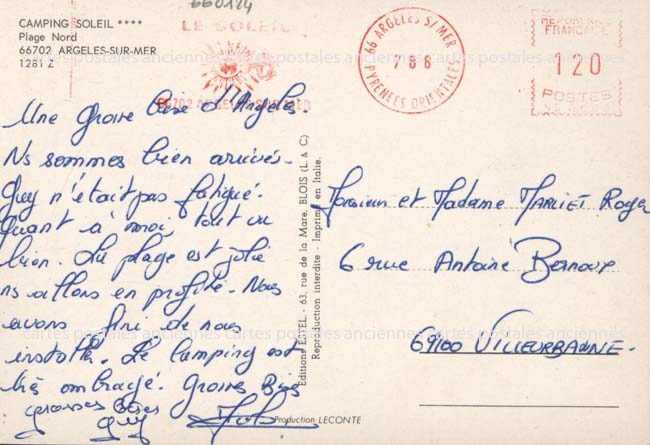 660124
CAMPING SOLEIL ****
Plage Nord
66702 ARGELES-SUR-MER
1281 Z
LE SOLEIL
66702 ARGELES-SUR-MER
66 ARGELES S/MER
7 8 8
PYRENEES ORIENTALES
REPUBLIQUE
FRANCAISE
120
POSTES
cartes postales anciennes cartes postales anciennes cartes postales anciennes
Une grosse bise d'Argelès.
Ns sommes bien arrivés.
Guy n'était pas fatigué.
Quant à moi, tout va
bien. La plage est jolie
ns allons en profiter. Nous
avons fini de nous
installer. Le Camping est
très ombragé. Grosses Bises
grosses bises
guy
Editions ESTEL - 63, rue de la Mare, BLOIS (L & C)
Reproduction interdite - Imprimé en Italie.
Production LECONTE
Monsieur et Madame MARLIET Roger
6 rue Antoine
69100 VILLEURBANNE.
cartes postales anciennes cartes postales anciennes cartes postales anciennes